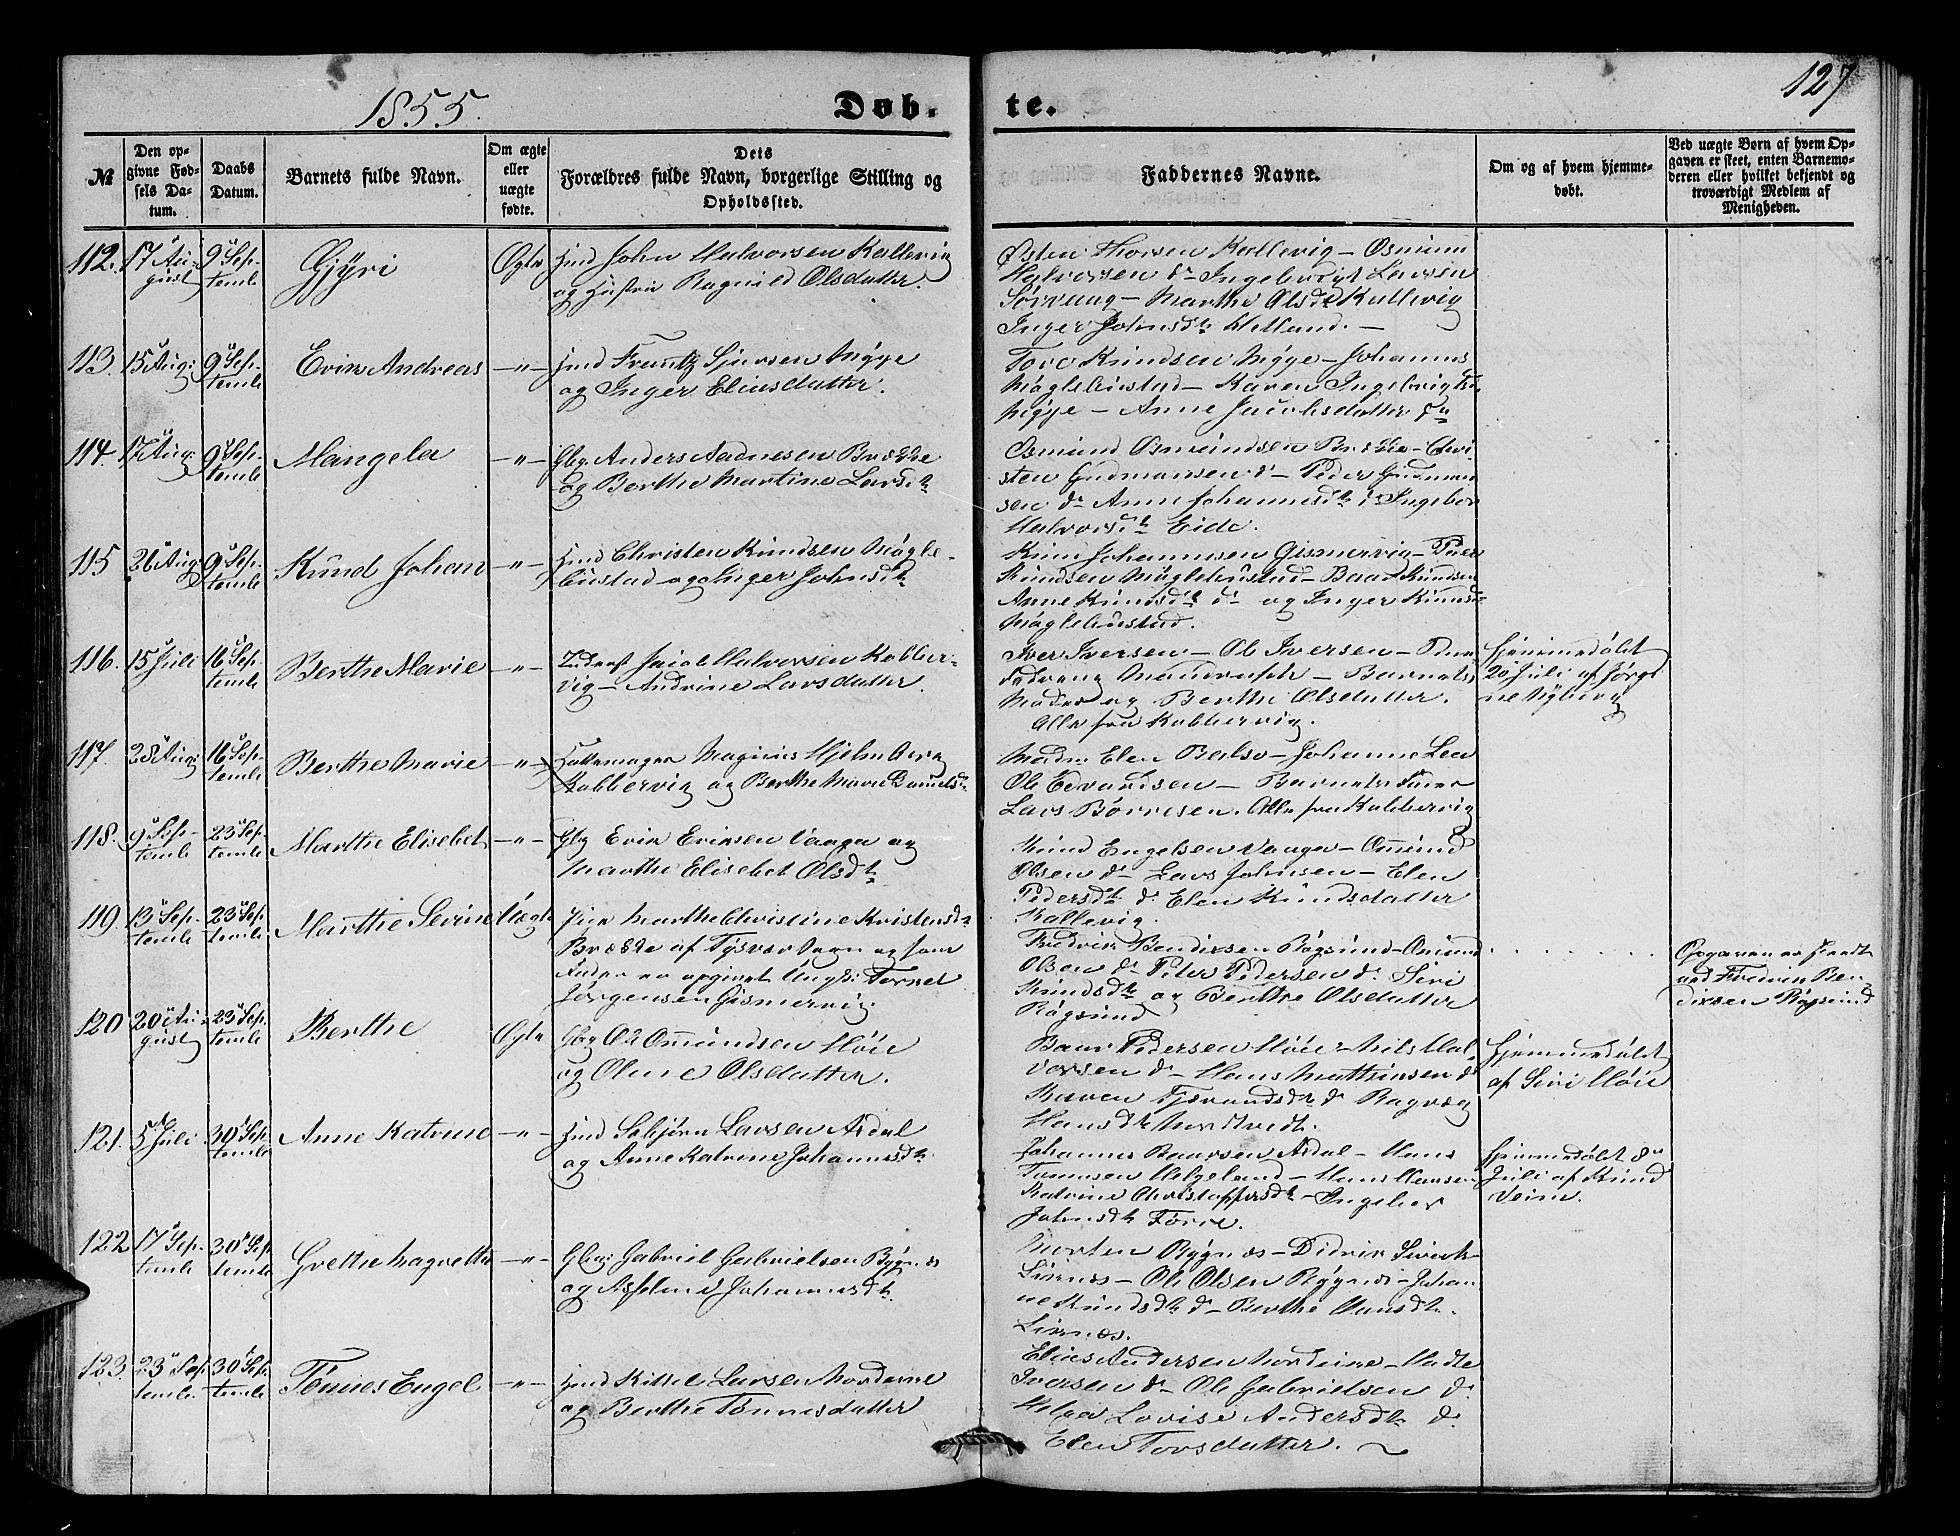 127
1855.
Døb-
te.
№
Den op-
givne Fød-
sels Da-
tum.
Daabs
Datum.
Barnets fulde Navn.
Om ægte
eller
uægte
fødte.
Dets
Forældres fulde Navn, borgerlige Stilling og
Opholdssted.
Faddernes Navne.
Om og af hvem hjemme-
døbt.
Ved uægte Børn af hvem Op-
gaven er skeet, enten Barnemo-
deren eller hvilket bekjendt og
troværdigt Medlem af
Menigheden.
112. 17 Au- 9 Sep- Gjyri Ægte Hmd John Halvorsen Kallevig
gust temb og Hustru Ragnild Olsdatter.
Østen Thorsen Kallevig - Osmun
Halvorsen do Ingebrigt Larsen
Sørvaag - Marthe Olsdt Kallevig
Inger Johnsdt Helland. -
113. 15 Aug: 9 Sep- Erik Andreas -"- Hmd Frantz Sjursen
temb og Inger Eliasdatter.
Tore Knudsen - Johannes
- Karen
- Anne Jacobsdatter
114. 17 Aug: 9 Sep- Mangela -"- Gbr Anders Aadnesen Brække
temb og Berthe Martine Larsdt
Osmund Osmundsen Brække - Chri
sten Gudmunsen do - Peder Gudmun
sen do Anne Johannesdt do Ingebor
Halvorsdt Eide.
115 26 Aug 9 Sep- Knud Johan -"- Hmd Christen Knudsen Møgle-
temb bustad og Inger Johnsdt
Knud Johannesen Gismervig -
Knudsen Møglebustad - Baar Knudsen
Anne Knudsdt do og Inger Knudsdt
Møglebustad.
116. 15 Juli 16 Sep- Berthe Marie -"- Jacob Halvorsen Kobber-
temb vig - Andrine Larsdatter.
Iver Iversen - Ole Iversen -
- Barnets
Moder og Berthe Olsdatter.
Alle fra Kobbervig.
Hjemmedøbt
20 Juli af Jørgi
ne Nyberg
117. 28 Aug: 16 Sep- Berthe Marie -"- Magnus Hjelm
temb Kobbervig og Berthe Marie Danielsd
Madm Elen Balso - Johanne Lea
Ole Edvardsen - Barnets Fader
Lars Børresen. Alle fra Kobbervig
118. 9 Sep- 23 Sep- Marthe Elisebet -"- Gbr Erik Eriksen Vaaga og
temb temb Marthe Elisebet Olsdt
Knud Engelsen Vaaga - Omund
Olsen do Lars Johnsen - Elen
Pedersdt do Elen Knudsdatter
Kallevig.
119. 13 Sep- 23 Sep Marthe Serine Uægte Pige Marthe Christine Kristensdt
temb temb Brække af Tysvær Sogn og som
Fader er opgivet Ungk: Tornel
Jørgensen Gismervig.
Fredrik Bendixsen Røgsund - Omund
Olsen do Peter Pedersen do Siri
Knudsdt og Berthe Olsdatter
Røgsund
Opgaven er skeedt
ved Fredrik Ben
dixsen Røgsund
120 20 Au- 23 Sep. Berthe Ægte Gbr Ole Omundsen Høie
gust temb og Oline Olsdatter.
Baar Pedersen Høie - Nils Hal
vorsen do - Hans Mathiasen do
Karen Tjerandsdt do Ragnæg
Hansdt Nordtvedt.
Hjemmedøbt
af Siri Høie
121. 5 Juli 30 Sep. Anne Katrine -"- Hmd Sebjørn Larsen Ardal
temb og Anne Katrine Johannesdt
Johannes Baarsen Ardal - Hans
Tomesen Helgeland - Hans Hansen
Katrine Christoffersdt - Ingebor
Johnsdt Førre.
Hjemmedøbt 8de
Juli af Knud
Veim.
122 17 Sep- 30 Sep Grethe Magrethe -"- Gbr: Gabriel Gabrielsen Bygnes
temb temb og Asseline Johannesdt
Morten Bygnes - Didrik Sivert
Liknes - Ole Olsen Bygnes - Johan
ne Knudsdt do - Berthe Hansdt
Liknes.
123. 23 Sep. 30 Sep Tønnes Engel -"- Hmd Kittel Larsen Norderne
temb. temb og Berthe Tønnesdatter
Elias Andersen Norderne - Hadle
Iversen do - Ole Gabrielsen do
Helga Lovise Andersdt do
Elen Torsdatter.